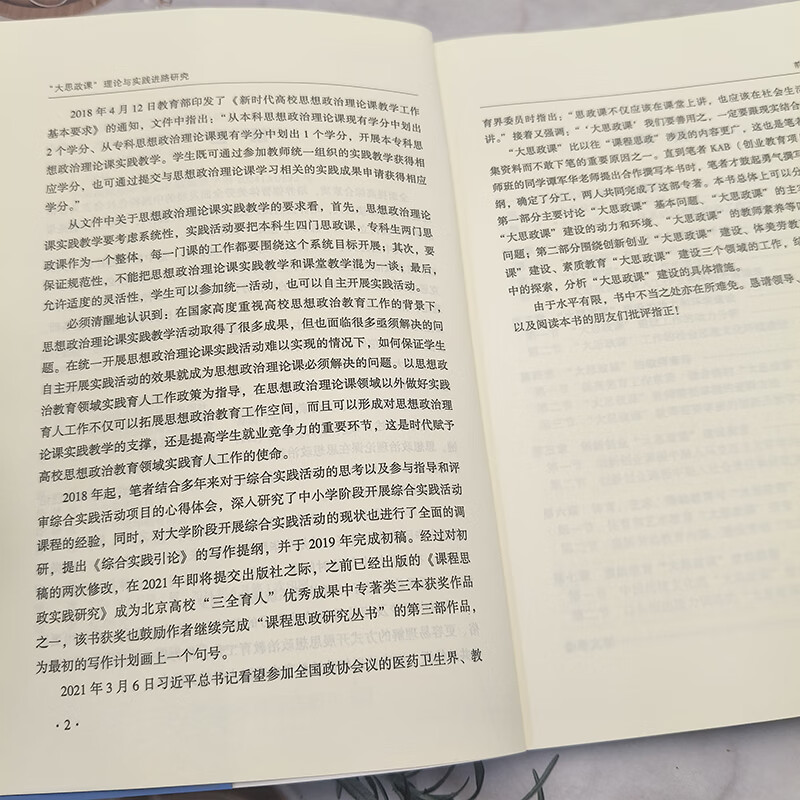 “大思政课”理论与实践进路研究
2018年4月12日教育部印发了《新时代高校思想政治理论课教学工作
基本要求》的通知，文件中指出：“从本科思想政治理论课现有学分中划出
2个学分、从专科思想政治理论课现有学分中划出1个学分，开展本专科思
想政治理论课实践教学。学生既可通过参加教师统一组织的实践教学获得相
应学分，也可通过提交与思想政治理论课学习相关的实践成果申请获得相应
学分。”
从文件中关于思想政治理论课实践教学的要求看，首先，思想政治理论
课实践教学要考虑系统性，实践活动要把本科生四门思政课，专科生两门思
政课作为一个整体，每一门课的工作都要围绕这个系统目标开展；其次，要
保证规范性，不能把思想政治理论课实践教学和课堂教学混为一谈；最后，
允许适度的灵活性，学生可以参加统一活动，也可以自主开展实践活动。
必须清醒地认识到：在国家高度重视高校思想政治教育工作的背景下，
思想政治理论课实践教学活动取得了很多成果，但也面临很多亟须解决的问
题。在统一开展思想政治理论课实践活动难以实现的情况下，如何保证学生
自主开展实践活动的效果就成为思想政治理论课必须解决的问题。以思想政
治教育领域实践育人工作政策为指导，在思想政治理论课领域以外做好实践
育人工作不仅可以拓展思想政治教育工作空间，而且可以形成对思想政治理
论课实践教学的支撑，还是提高学生就业竞争力的重要环节，这是时代赋予
高校思想政治教育领域实践育人工作的使命。
2018年起，笔者结合多年来对于综合实践活动的思考以及参与指导和评
审综合实践活动项目的心得体会，深入研究了中小学阶段开展综合实践活动
课程的经验，同时，对大学阶段开展综合实践活动的现状也进行了全面的调
研，提出《综合实践引论》的写作提纲，并于2019年完成初稿。经过对初
稿的两次修改，在2021年即将提交出版社之际，之前已经出版的《课程思
政实践研究》成为北京高校“三全育人”优秀成果中专著类三本获奖作品
之一，该书获奖也鼓励作者继续完成“课程思政研究丛书”的第三部作品，
为最初的写作计划画上一个句号。
2021年3月6日习近平总书记看望参加全国政协会议的医药卫生界、教
·2·
育界委员时指出：“思政课不仅应该在课堂上讲，也应该在社会生活
讲。”接着又强调：“‘大思政课’我们要善用之，一定要跟现实结合
“大思政课”比以往“课程思政”涉及的内容更广，这也是笔者
集资料而不敢下笔的重要原因之一。直到笔者KAB（创业教育项
师班的同学谭军华老师提出合作撰写本书时，笔者才鼓起勇气撰写
纲，确定了分工，两人共同完成了这部专著。本书总体上可以分
第一部分主要讨论“大思政课”基本问题、“大思政课”的主
“大思政课”建设的动力和环境、“大思政课”的教师素养等
问题；第二部分围绕创新创业“大思政课”建设、体美劳教育
课”建设、素质教育“大思政课”建设三个领域的工作，综
中的探索，分析“大思政课”建设的具体措施。
由于水平有限，书中不当之处亦在所难免。恳请领导、
以及阅读本书的朋友们批评指正！